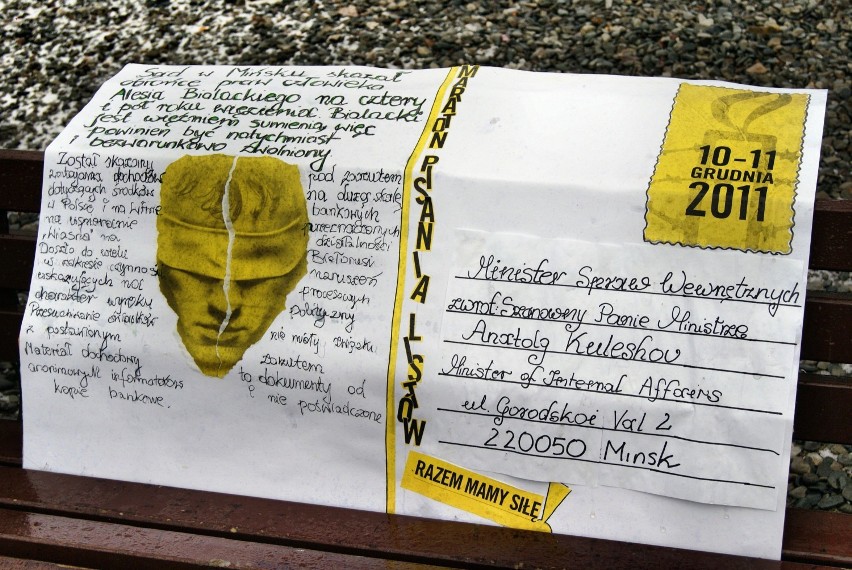 Sąd w Mińsku skazał
obrońcę praw człowieka
Alesia Bialackiego na cztery
i pół roku więzienia. Bialacki
jest więźniem sumienia, więc
powinien być natychmiast
i bezwarunkowo zwolniony.
Został skazany pod zarzutem
zatajania dochodów na dużą skalę
dotyczących środków bankowych
w Polsce i na Litwie przeznaczonych
na wspieranie działalności
"Wiasna" na Białorusi
Doszło do wielu naruszeń
w zakresie czynności procesowych
wskazujących na polityczny
charakter wyroku
Przesłuchanie świadków nie miały związku
z postawionym zarzutem
Materiał dowodowy to dokumenty od
anonimowych informatorów i nie poświadczone
kopie bankowe.
MARATON PISANIA LISTÓW
10-11
GRUDNIA
2011
Minister Spraw Wewnętrznych
zwrot: Szanowny Panie Ministrze
Anatoly Kuleshov
Minister of Internal Affairs
ul. Gorodskoi Val 2
220050 Minsk
RAZEM MAMY SIŁĘ